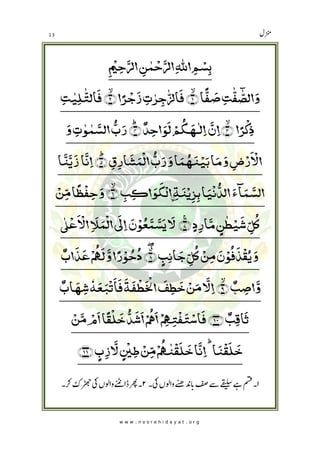 13 منزل
بِسْمِ اللهِ الرَّحْمٰنِ الرَّحِيْمِ
وَالصّٰٓفّٰتِ صَفًّا ۙ﴿۱﴾ فَالزّٰجِرٰتِ زَجْرًا ۙ﴿۲﴾ فَالتّٰلِيٰتِ
ذِكْرًا ۙ﴿۳﴾ اِنَّ اِلٰهَكُمْ لَوَاحِدٌ ؕ﴿۴﴾ رَبُّ السَّمٰوٰتِ وَ
الْاَرْضِ وَمَا بَيْنَهُمَا وَرَبُّ الْمَشَارِقِ ؕ﴿۵﴾ اِنَّا زَيَّنَّا
السَّمَآءَ الدُّنْيَا بِزِيْنَةِ ِ۟الْكَوَاكِبِ ۙ﴿۶﴾ وَحِفْظًا مِّنْ
كُلِّ شَيْطٰنٍ مَّارِدٍ ۚ﴿۷﴾ لَا يَسَّمَّعُوْنَ اِلَى الْمَلَاِ الْاَعْلٰى
وَيُقْذَفُوْنَ مِنْ كُلِّ جَانِبٍ ۖ﴿۸﴾ دُحُوْرًا وَّلَهُمْ عَذَابٌ
وَّاصِبٌ ۙ﴿۹﴾ اِلَّا مَنْ خَطِفَ الْخَطْفَةَ فَاَتْبَعَهٗ شِهَابٌ
ثَاقِبٌ ﴿۱۰﴾ فَاسْتَفْتِهِمْ اَهُمْ اَشَدُّ خَلْقًا اَمْ مَّنْ
خَلَقْنَا ؕ اِنَّا خَلَقْنٰهُمْ مِّنْ طِيْنٍ لَّازِبٍ ﴿۱۱﴾
۱۔ قسم ہے سلیقے سے صف باندھنے والوں کی۔ ۲۔ پھر ڈانٹنے والوں کی جھڑک کر۔
www.noorehidayat.org